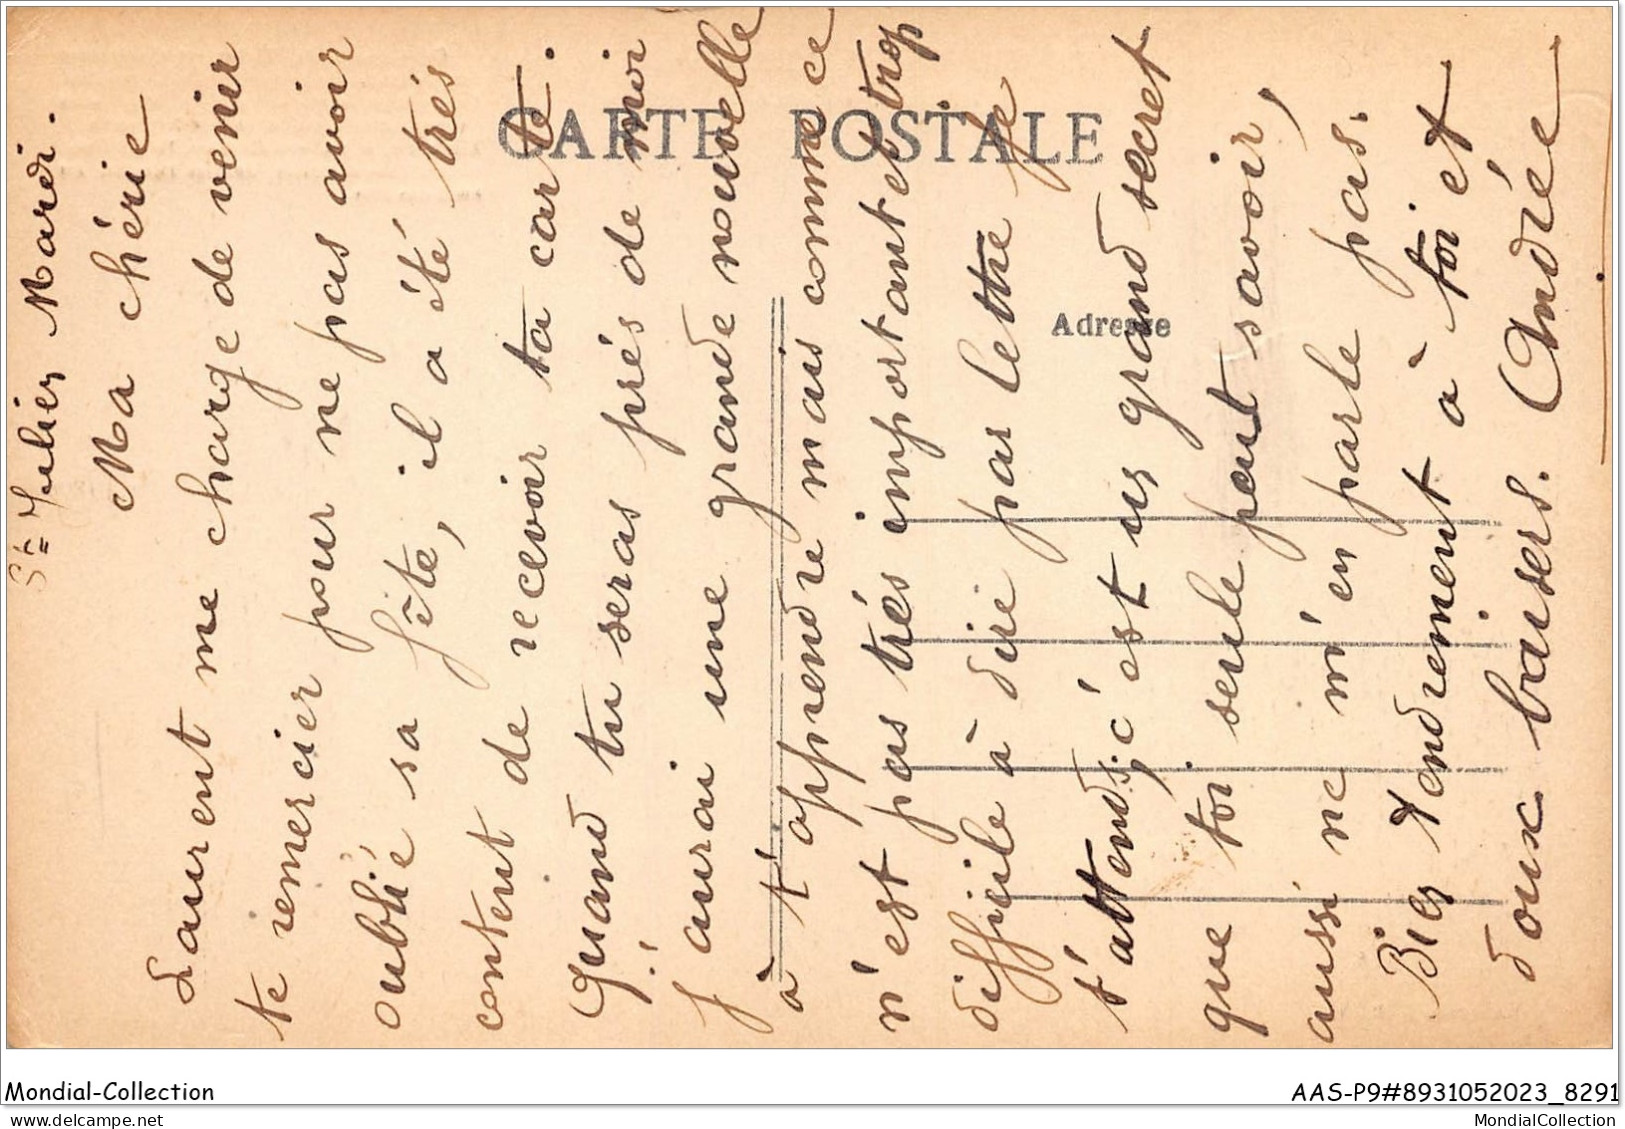 St= Julien Mardi.
Ma chérie
Laurent me charge de venir
te remercier pour ne pas avoir
oublié sa fête, il a été trés
content de recevoir ta carte.
Quand tu seras prés de moi
j'aurai une grande nouvelle
à t'apprendre mais comme ce
n'est pas trés important et trop
difficile à dire par lettre je
t'attends; c'est un grand secret
que toi seule peut savoir,
aussi ne m'en parle pas.
Bien tendrement à toi et
doux baisers. Andrée
CARTE POSTALE
Adresse
Mondial-Collection
AAS-P9#8931052023_8291
delcampe.net
MondialCollection